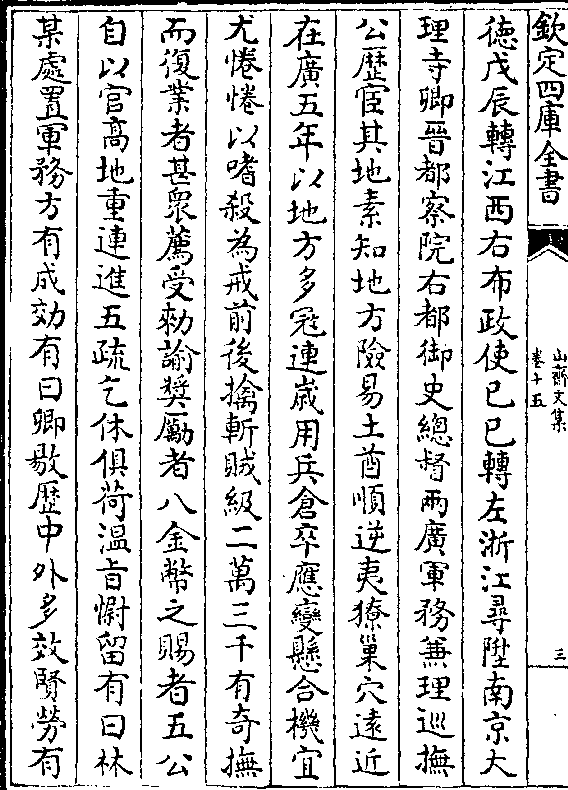 欽定四庫全書
山齋文集
卷十五
三
德戊辰轉江西右布政使己巳轉左浙江尋陞南京大
理寺卿晉都察院右都御史總督兩廣軍務兼理巡撫
公歷宦其地素知地方險易土酋順逆夷獠巢穴遠近
在廣五年以地方多寇連歲用兵倉卒應變懸合機宜
尤惓惓以嗜殺為戒前後擒斬賊級二萬三千有奇撫
而復業者甚衆薦受勅諭奬勵者八金幣之賜者五公
自以官高地重連進五疏乞休俱荷溫旨慰留有曰林
某處置軍務方有成効有曰卿敭歷中外多效賢勞有